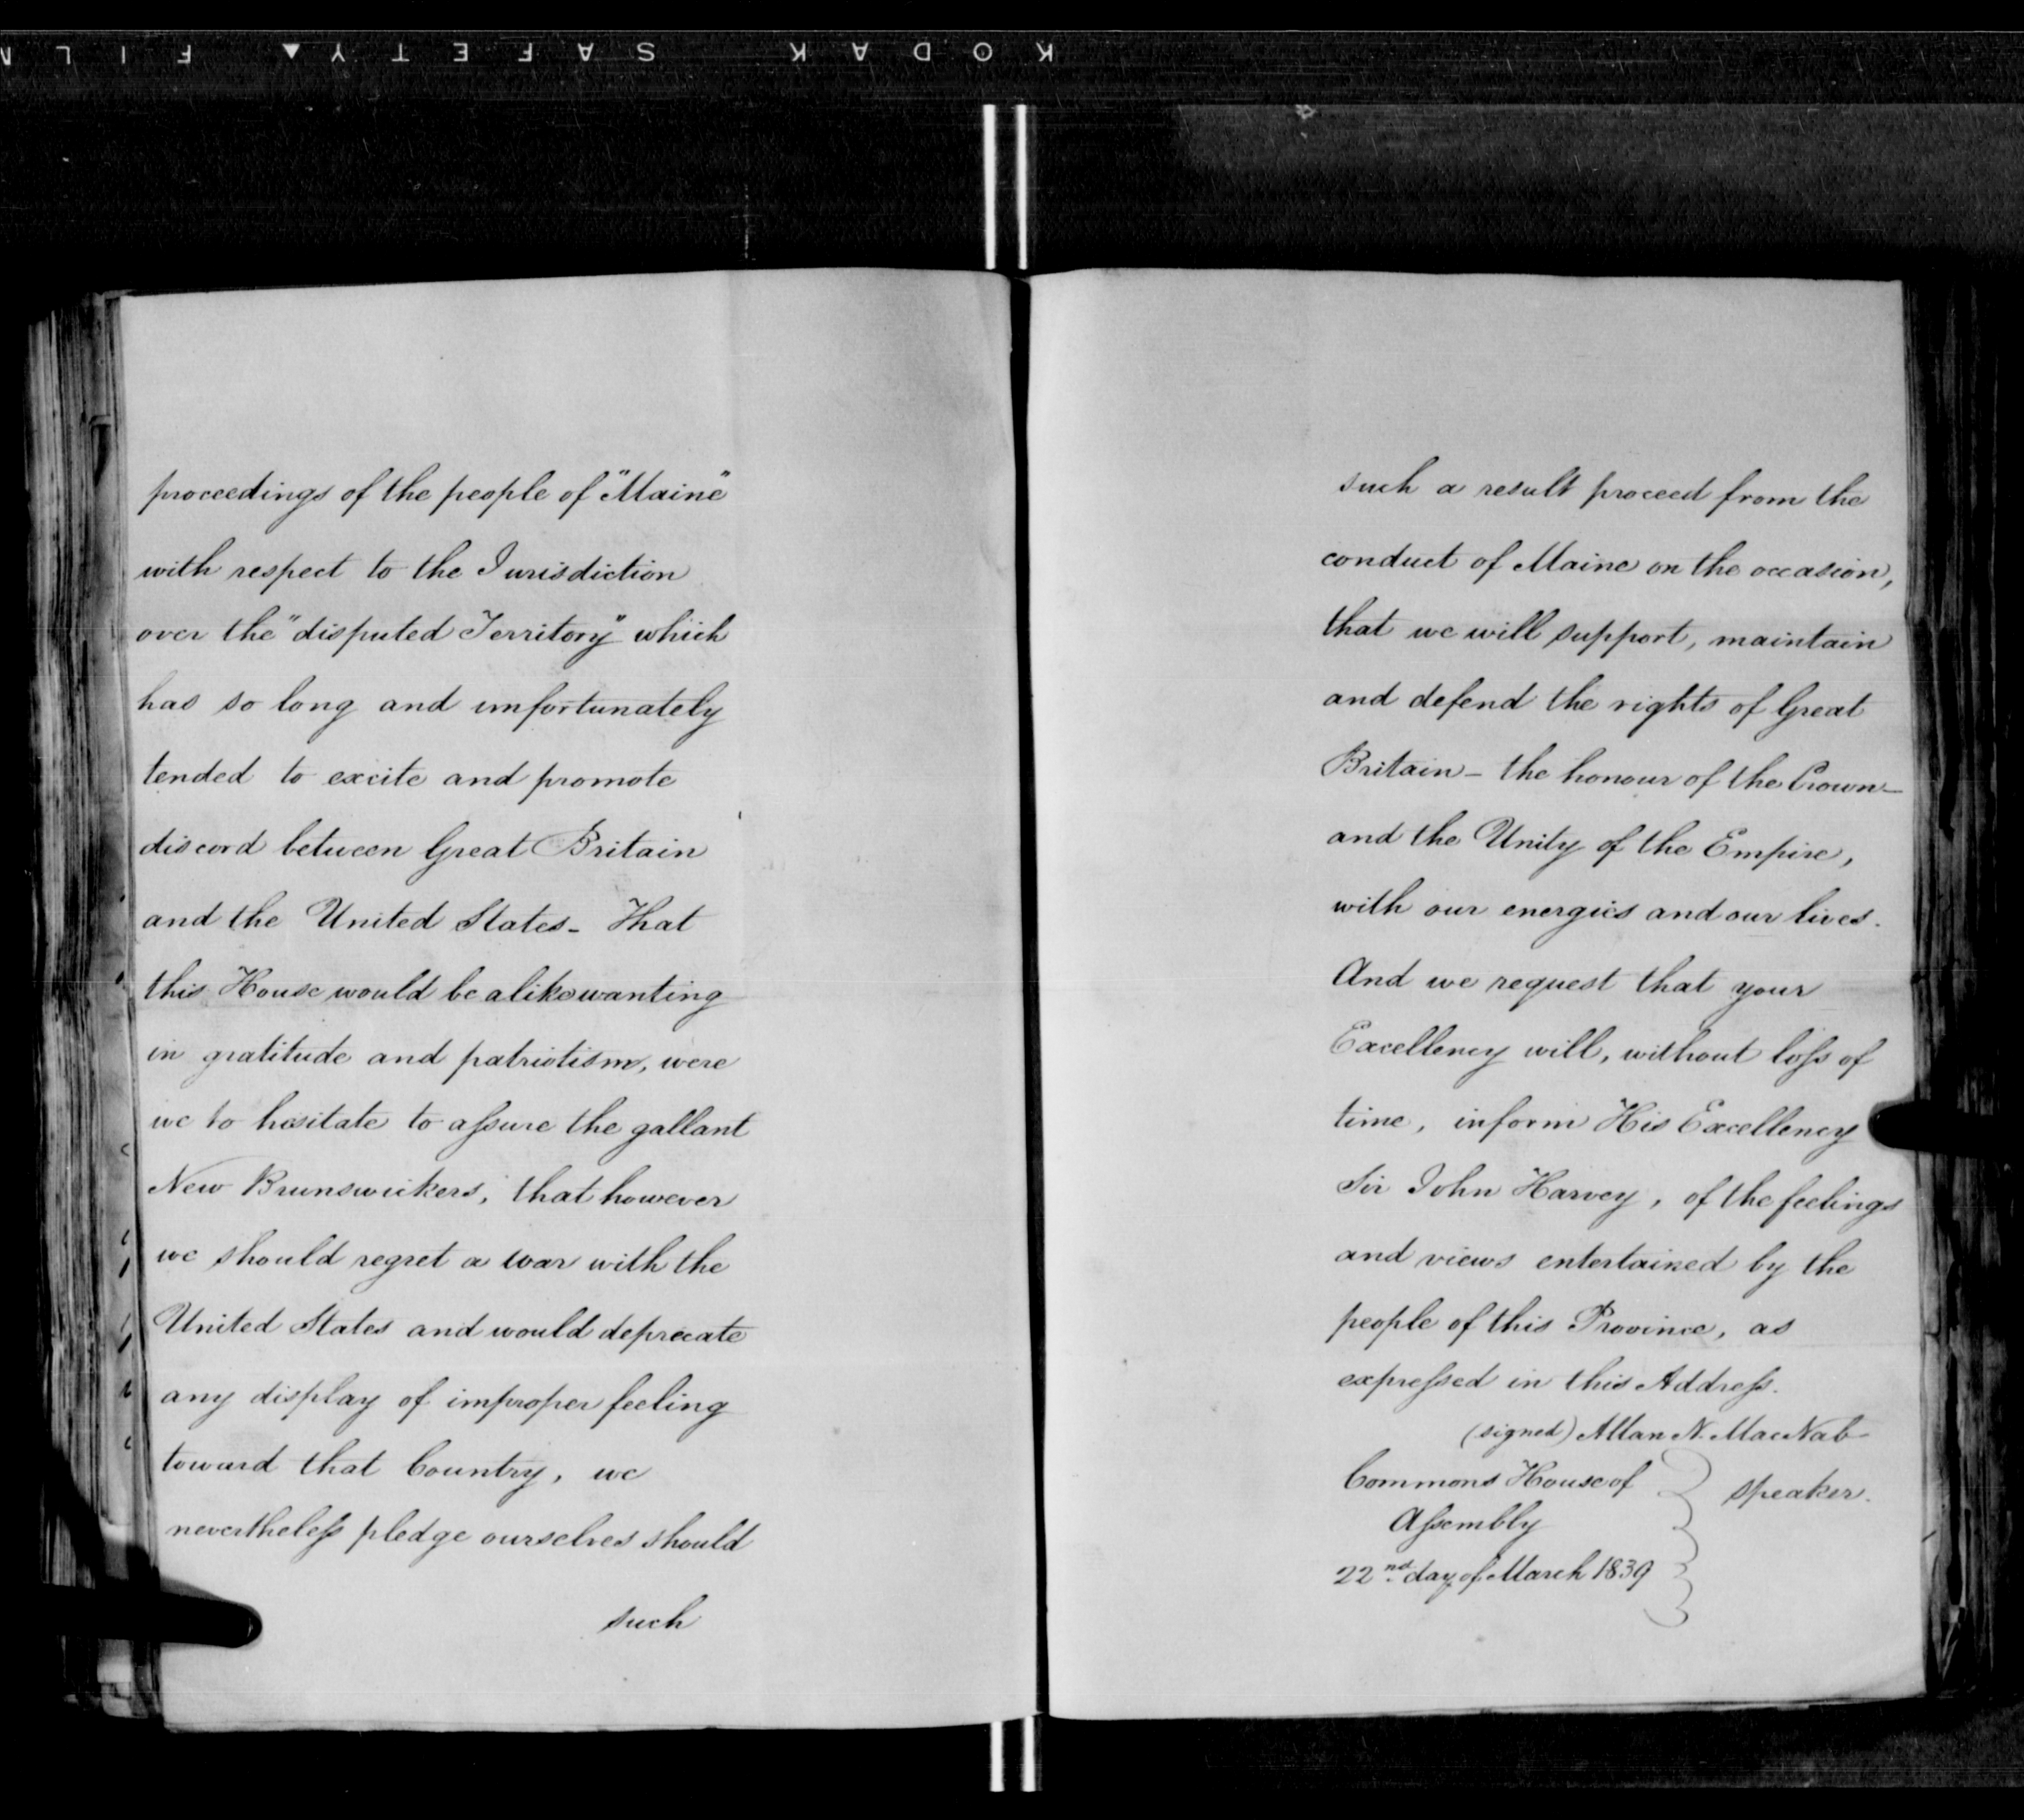 KODAK SAFETY FILM
proceedings of the people of "Maine"
with respect to the Jurisdiction
over the "disputed Territory" which
has so long and unfortunately
tended to excite and promote
discord between Great Britain
and the United States - That
this House would be alike wanting
in gratitude and patriotism, were
we to hesitate to assure the gallant
New Brunswickers, that however
we should regret a war with the
United States and would deprecate
any display of improper feeling
toward that Country, we
nevertheless pledge ourselves should
such
such a result proceed from the
conduct of Maine on the occasion,
that we will support, maintain
and defend the rights of Great
Britain - the honour of the Crown -
and the Unity of the Empire,
with our energies and our lives.
And we request that your
Excellency will, without loss of
time, inform His Excellency
Sir John Harvey, of the feelings
and views entertained by the
people of this Province, as
expressed in this Address.
(signed) Allan N. MacNab
Commons House of
Speaker.
Assembly
22nd day of March 1839